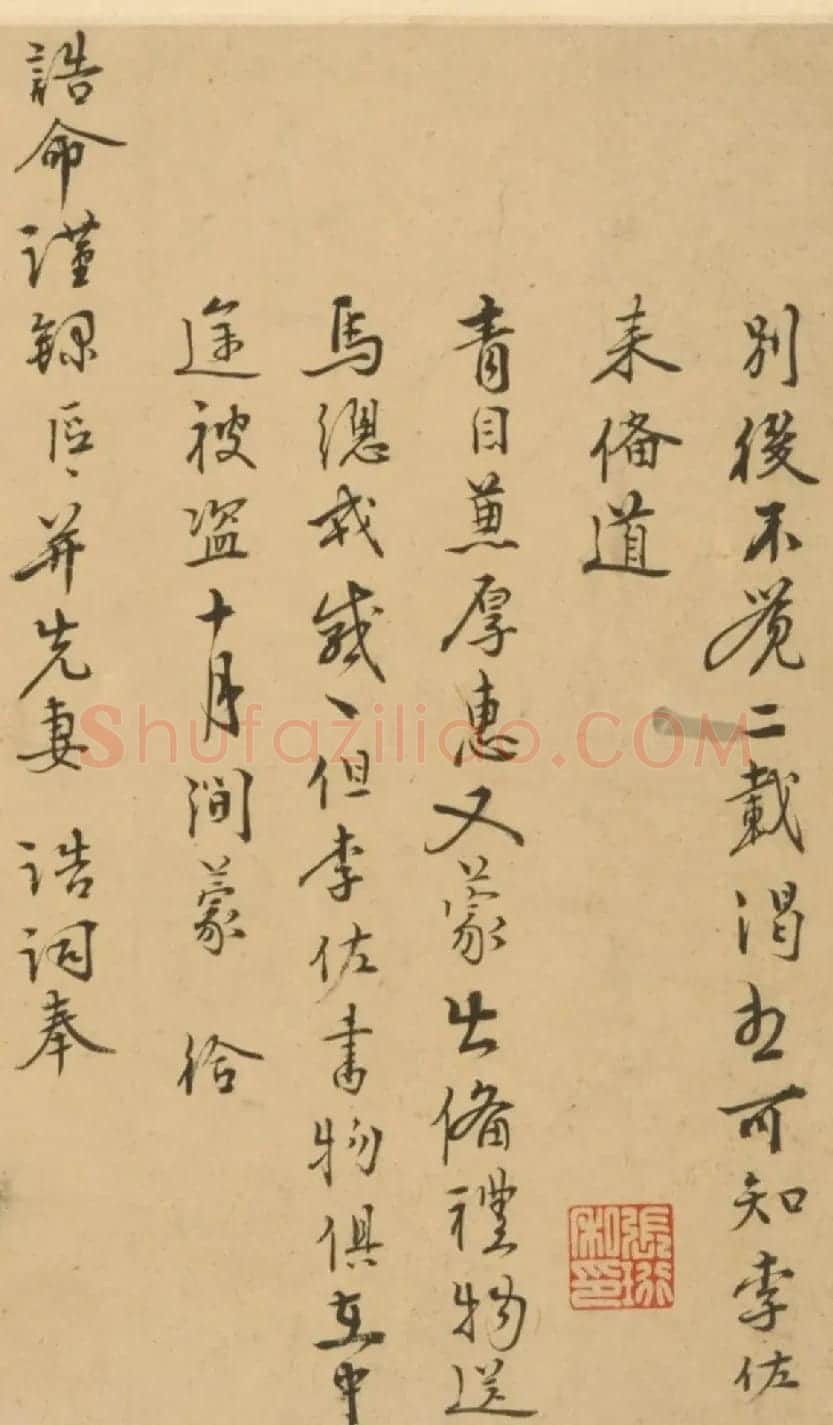 別後不覺二載渴想可知李佐
来備道
青目蒽厚惠又蒙出備禮物送
馬總戎感〻但李佐書物俱在中
途被盗十月間蒙 給
誥命謹録區〻并先妻 誥詞奉
Shufazilido.COM